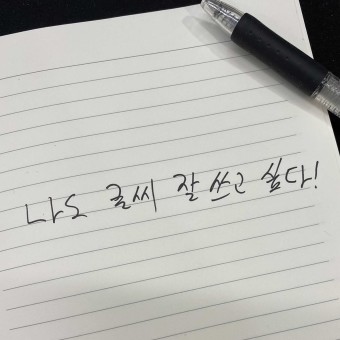 나도 글씨 잘 쓰고 싶다!